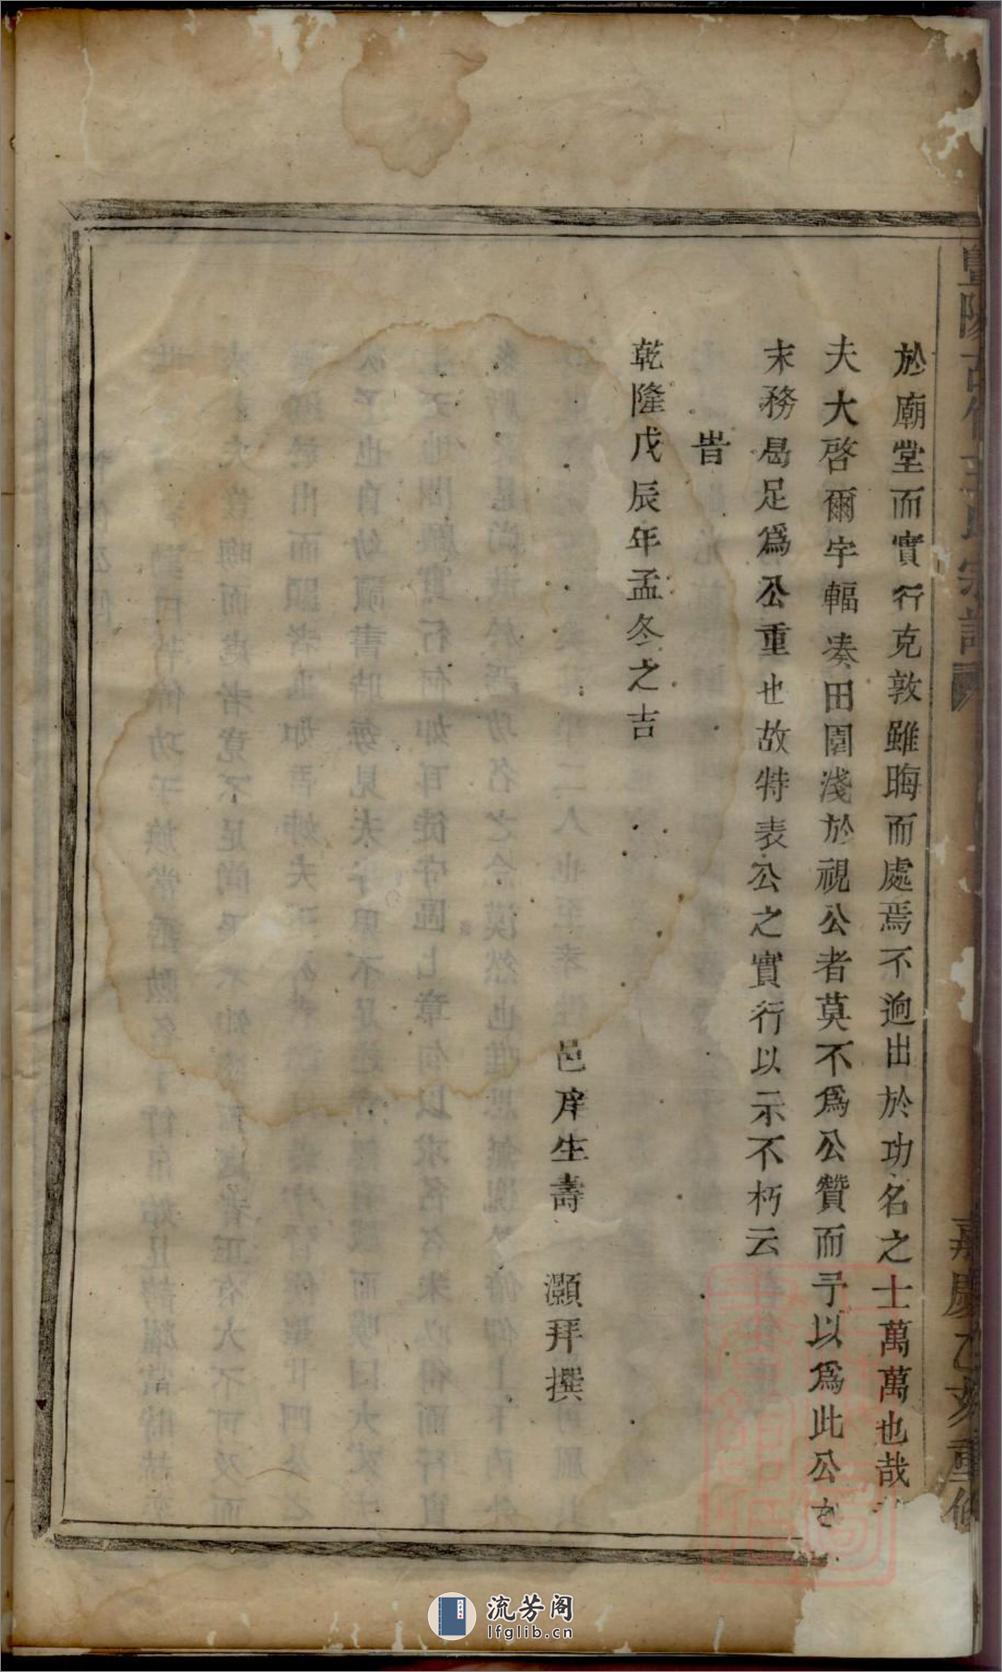 於廟堂而實行克敦雖晦而處焉不逈出於功名之士萬萬也哉
夫大啓爾宇輻凑田園淺於視公者莫不爲公贊而予以爲此公
末務曷足爲公重也故特表公之實行以示不朽云
旹
乾隆戊辰年孟冬之吉
邑庠生壽 灝拜撰
暨陽 宗譜
嘉慶乙亥重修
流芳阁
lfglib.cn